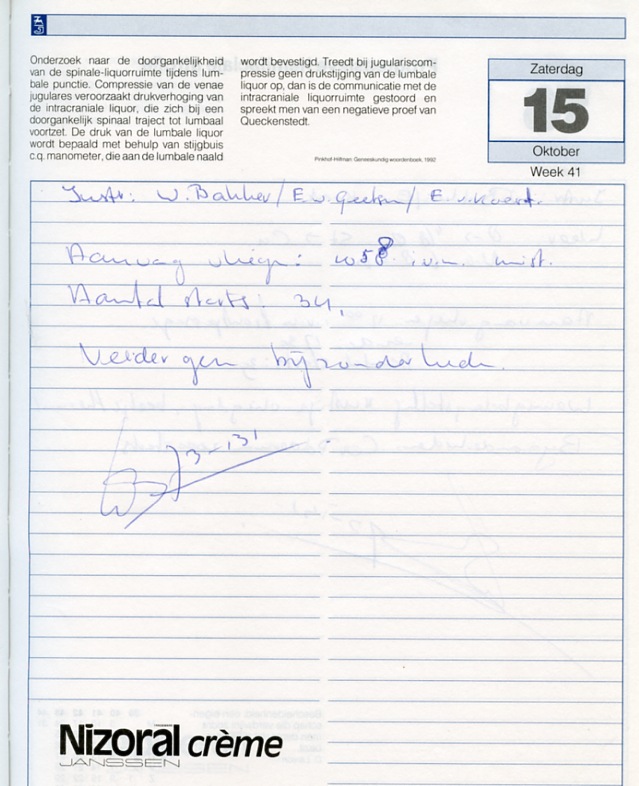 Onderzoek naar de doorgankelijkheid
van de spinale-liquorruimte tijdens lum-
bale punctie. Compressie van de venae
jugulares veroorzaakt drukverhoging van
de intracraniale liquor, die zich bij een
doorgankelijk spinaal traject tot lumbaal
voortzet. De druk van de lumbale liquor
wordt bepaald met behulp van stijgbuis
c.q. manometer, die aan de lumbale naald
wordt bevestigd. Treedt bij jugulariscom-
pressie geen drukstijging van de lumbale
liquor op, dan is de communicatie met de
intracraniale liquorruimte gestoord en
spreekt men van een negatieve proef van
Queckenstedt.
Pinkhof-Hilfman: Geneeskundig woordenboek, 1992
Zaterdag
15
Oktober
Week 41
Instr: W. Bakker / E v. / E. v.
Aanvang vliegen: i.v.m. mist.
Aantal starts: 34.
Verder geen bijzonderheden.
Nizoral crème
JANSSEN